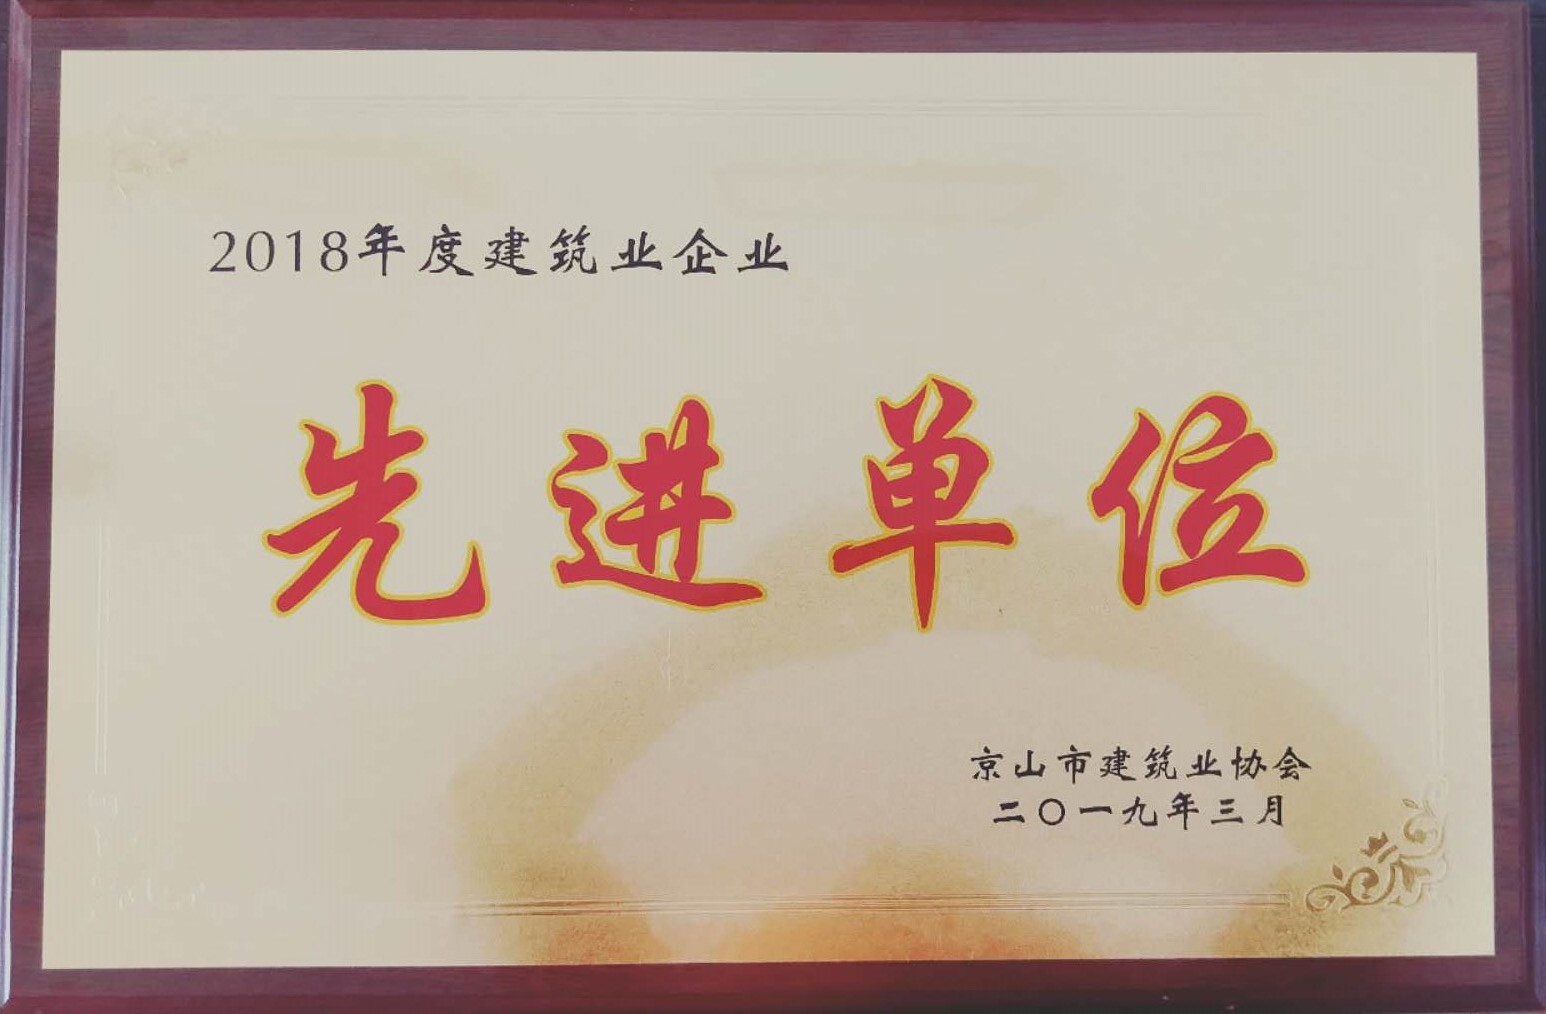 2018年度建筑业企业
先进单位
京山市建筑业协会
二〇一九年三月